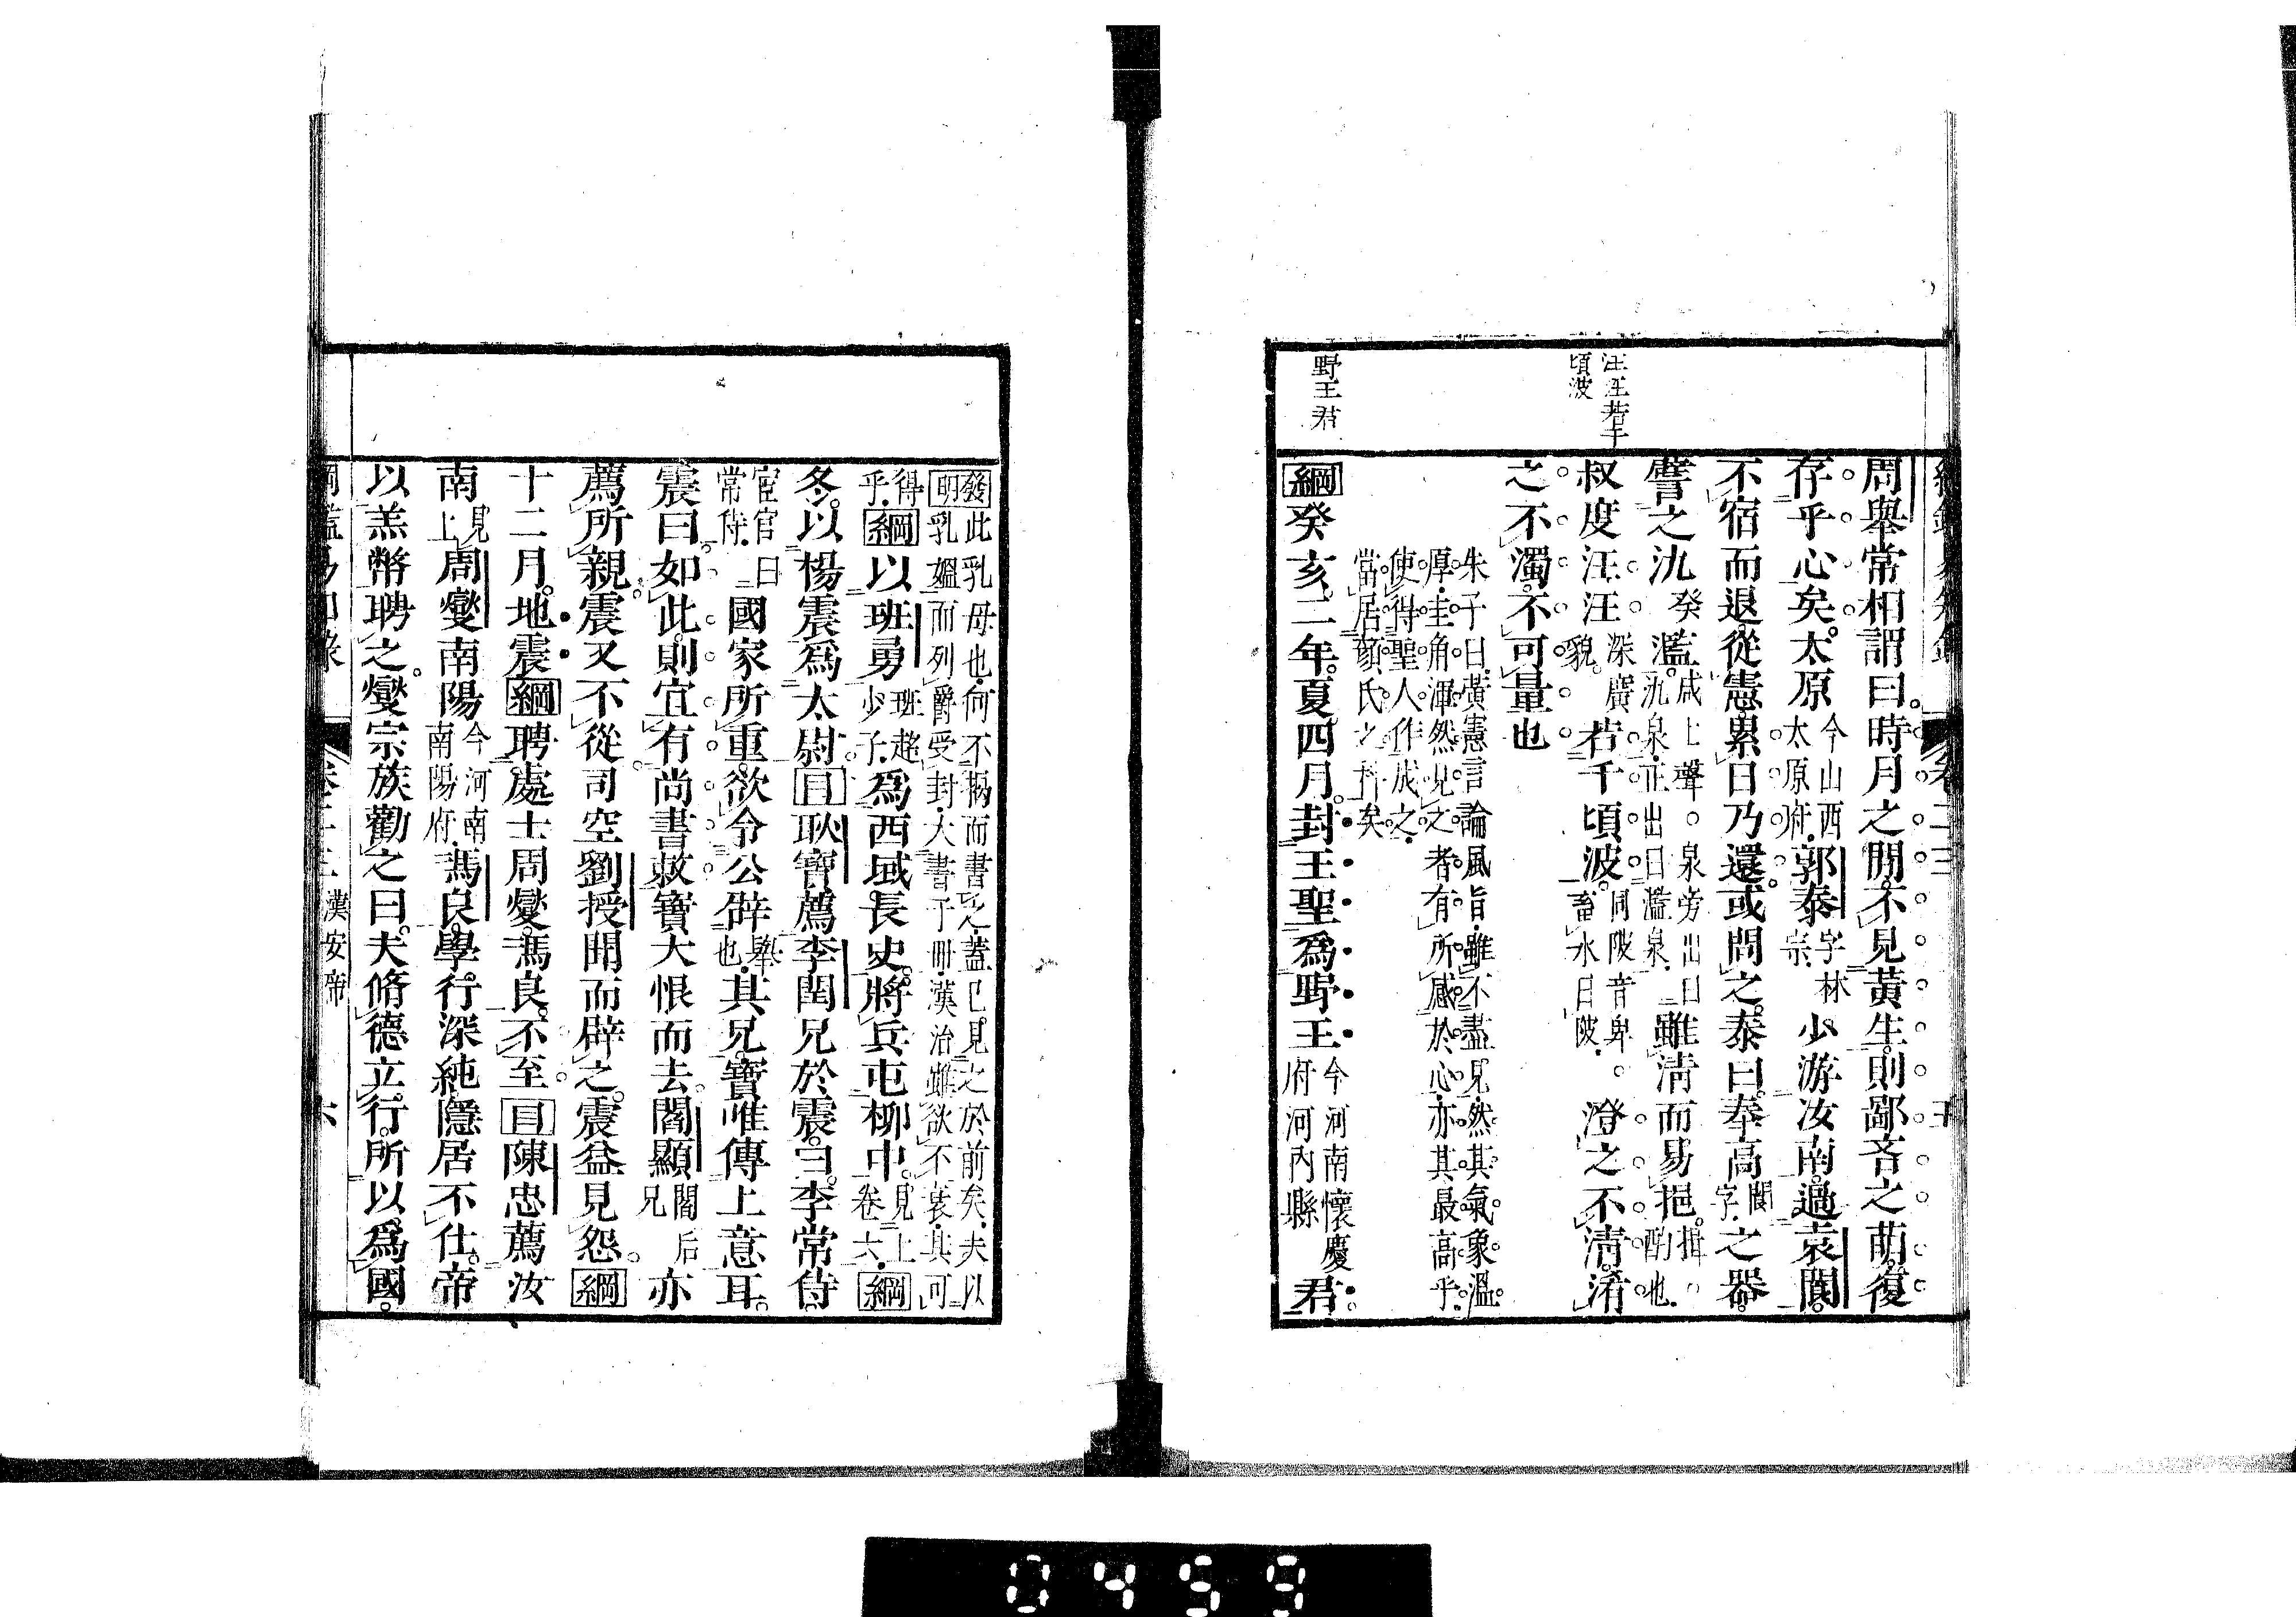 汪汪若千
頃波
野王君
周舉常相謂曰時月之間不見黃生則鄙吝之萌復
存乎心矣太原今山西太原府郭泰字林宗少游汝南過袁閬
不宿而退從憲累日乃還或問之泰曰奉高閬字之器
譬之氿癸濫咸上聲泉旁出曰氿泉正出曰濫泉雖淸而易挹揖酌也
叔度汪汪深廣貌若千頃波同陂音卑畜水曰陂澄之不淸淆
之不濁不可量也
朱子曰黃憲言論風旨雖不盡見然其氣象溫
厚圭角渾然見之者有所感於心亦其最高乎
使得聖人作成之
當居顏氏之科矣
綱癸亥二年夏四月封王聖爲野王今河南懷慶府河內縣君
發明此乳母也何不稱而書之蓋已見之於前矣夫以
乳媼而列爵受封大書于冊漢治雖欲不衰其可
得乎綱以班勇班超少子爲西域長史將兵屯柳中見上卷六綱
冬以楊震爲太尉目耿寶薦李閏兄於震曰李常侍
宦官曰常侍國家所重欲令公辟舉也其兄寶唯傳上意耳
震曰如此則宜有尚書敕寶大恨而去閻顯閻后兄亦
薦所親震又不從司空劉授聞而辟之震益見怨綱
十二月地震綱聘處士周燮馮良不至目陳忠薦汝
南見上周燮南陽今河南南陽府馮良學行深純隱居不仕帝
以羔幣聘之燮宗族勸之曰夫脩德立行所以爲國
漢安帝